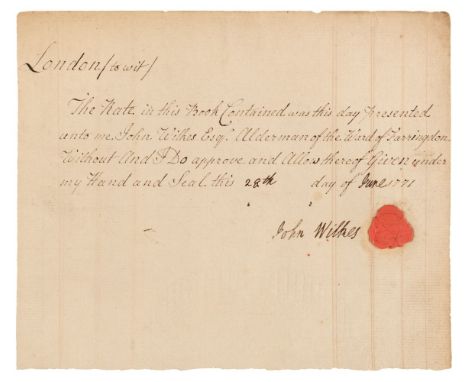 London (to wit)
The Rate in this Book Contained was this day Presented
unto me John Wilkes Esqr. Alderman of the Ward of Farringdon
Without And I Do approve and Allow thereof Given under
my Hand and Seal this 28th day of June 1771
John Wilkes